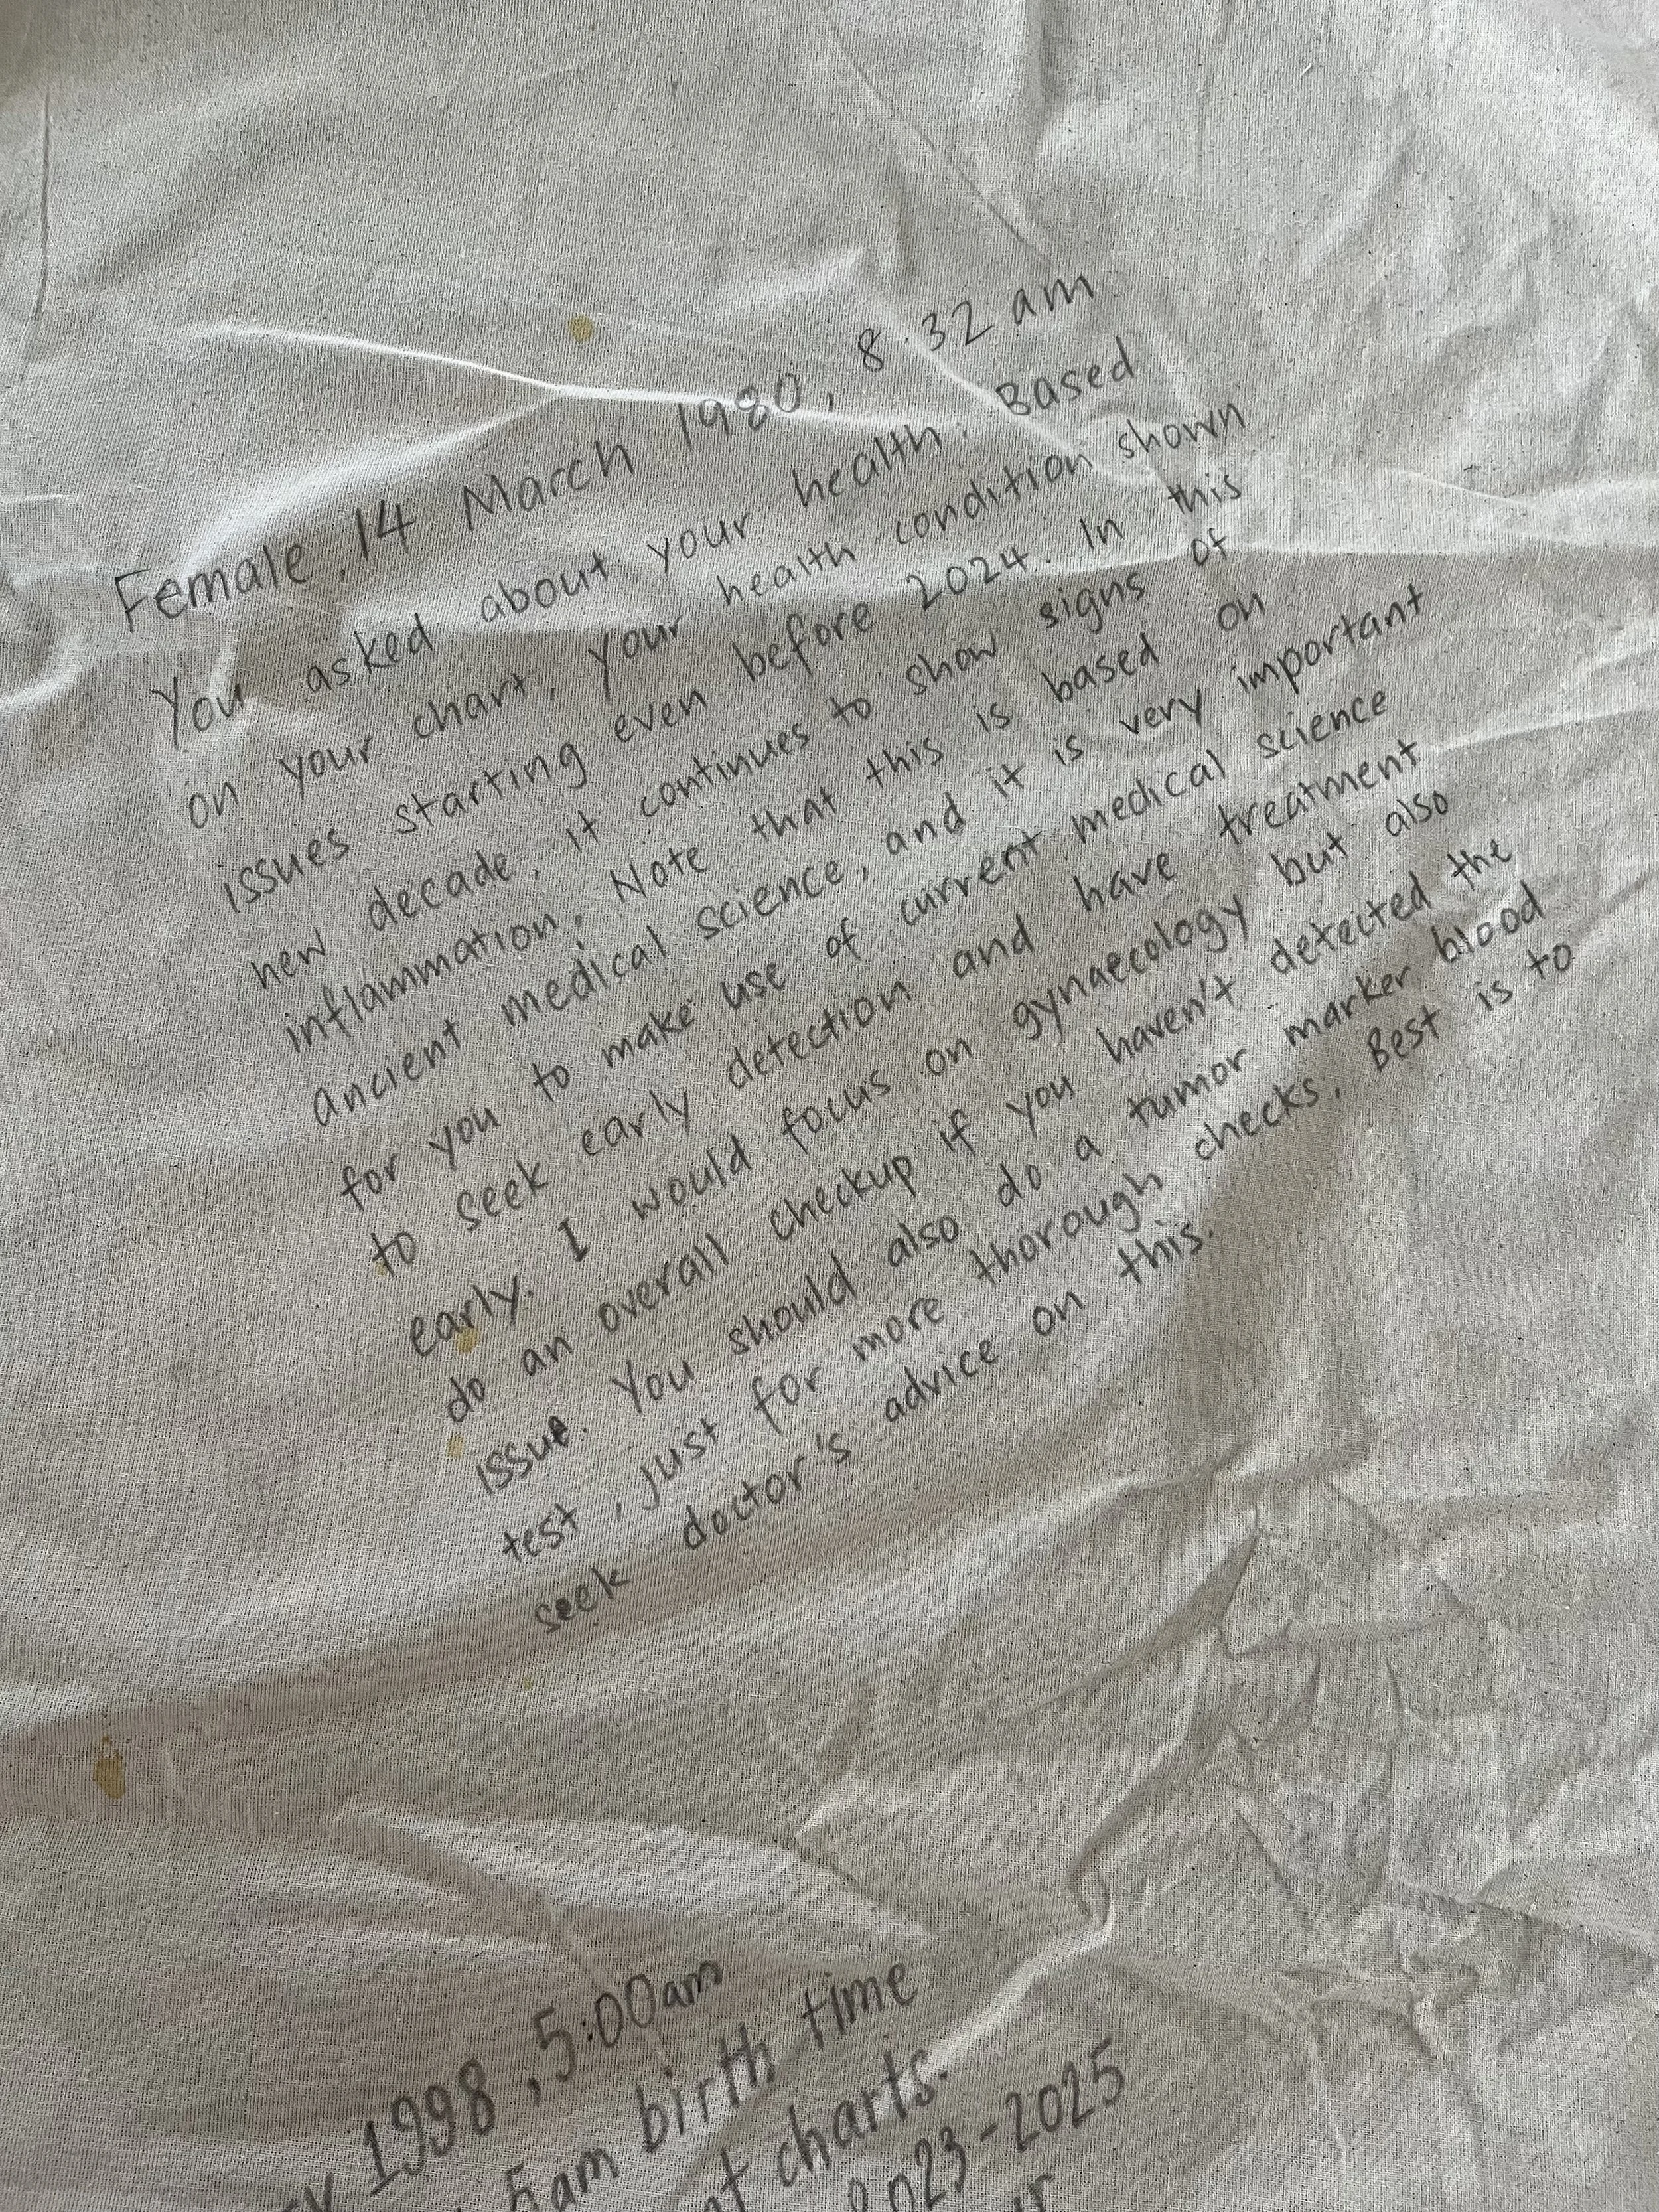 Female, 14 March 1980, 8:32 am
You asked about your health. Based
on your chart, your health condition shown
issues starting even before 2024. In this
new decade, it continues to show signs of
inflammation. Note that this is based on
ancient medical science, and it is very important
for you to make use of current medical science
to seek early detection and have treatment
early. I would focus on gynaecology but also
do an overall checkup if you haven't detected the
issue. You should also do a tumor marker blood
test, just for more thorough checks. Best is to
seek doctor's advice on this.
1998, 5:00am
5am birth time
charts.
2023-2025